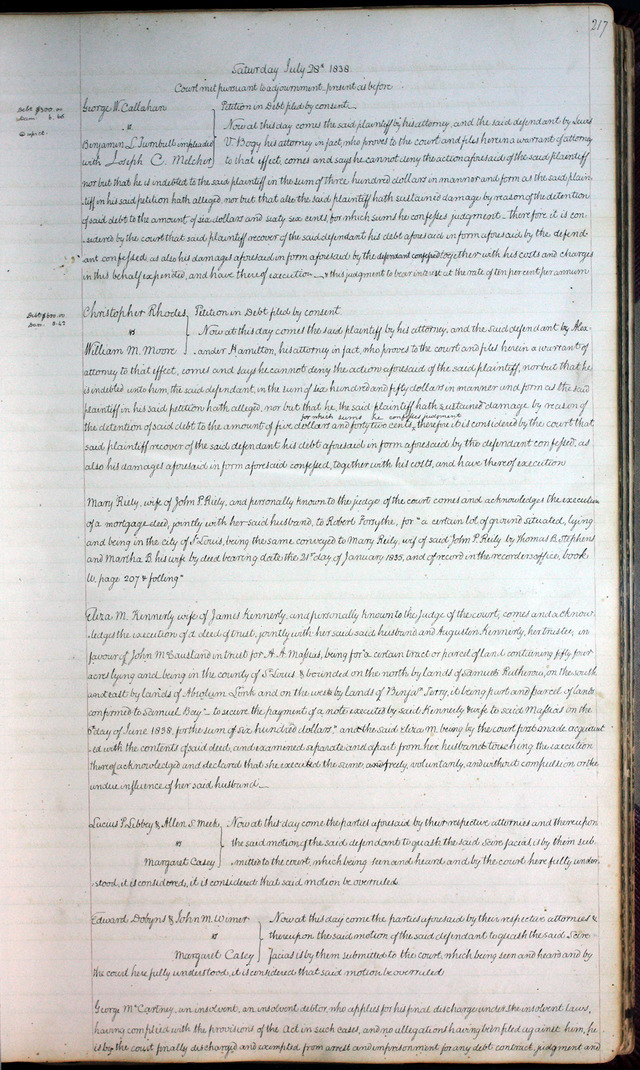 217
Saturday July 28th 1838
Court met pursuant to adjournment, present as before
Debt $300.00
Dam 6.66
George W. Callahan } Petition in Debt filed by consent
vs } Now at this day comes the said plaintiff by his attorney, and the said defendant by Lewis
Benjamin L. Turnbull impleaded } V. Bogy his attorney in fact, who proves to the court and files herein a warrant of attorney
with Joseph C. Melcher } to that effect, comes and says he cannot deny the action aforesaid of the said plaintiff
nor but that he is indebted to the said plaintiff in the sum of three hundred dollars in manner and form as the said plain-
tiff in his said petition hath alleged, nor but that also the said plaintiff hath sustained damage by reason of the detention
of said debt to the amount of six dollars and sixty six cents, for which sums he confesses judgment. Therefore it is con-
sidered by the court that said plaintiff recover of the said defendant his debt aforesaid in form aforesaid by the defend-
ant confessed, as also his damages aforesaid in form aforesaid by the defendant confessed together with his costs and charges
in this behalf expended, and have thereof execution & this judgment to bear interest at the rate of ten per cent per annum
Dam 5.42
Christopher Rhodes } Petition in Debt filed by consent
vs } Now at this day comes the said plaintiff by his attorney, and the said defendant by Alex-
William M. Moore } ander Hamilton, his attorney in fact, who proves to the court and files herein a warrant of
attorney to that effect, comes and says he cannot deny the action aforesaid of the said plaintiff, nor but that he
is indebted unto him, the said defendant, in the sum of six hundred and fifty dollars in manner and form as the said
plaintiff in his said petition hath alleged, nor but that he, the said plaintiff hath sustained damage by reason of
for which sums he confesses judgment
the detention of said debt to the amount of five dollars and forty two cents, therefore it is considered by the court that
said plaintiff recover of the said defendant his debt aforesaid in form aforesaid by the defendant confessed, as
also his damages aforesaid in form aforesaid confessed, together with his costs, and have thereof execution
Mary Riely, wife of John P. Riely, and personally known to the judge of the court comes and acknowledges the execution
of a mortgage deed, jointly with her said husband, to Robert Forsythe, for "a certain lot of ground situated, lying
and being in the city of St Louis, being the same conveyed to Mary Reily, wife of said John P. Reily by Thomas B. Stephens
and Martha B. his wife by deed bearing date the 21st day of January 1835, and of record in the recorders office, book
W. page 207 & folling"
Eliza M. Kennerly wife of James Kennerly, and personally known to the Judge of the court, comes and acknow-
ledges the execution of a deed of trust, jointly with her said said husband and Auguston Kennerly, her trustee, in
favour of John McCausland in trust for A. A. Massias, being for "a certain tract or parcel of land containing fifty four
acres lying and being in the county of St Louis & bounded on the north by lands of Samuel Rutherow, on the south
and east by lands of Absolum Link and on the west by lands of Benja. Terry, it being part and parcel of land
confirmed to Samuel Bay - to secure the payment of a note executed by said Kennerly & wife to said Massias on the
day of June 1838, for the sum of six hundred dollars," and the said Eliza M. being by the court first made acquaint
-ed with the contents of said deed, and examined separate and apart from her husband touching the execution
thereof acknowledged and declared that she executed the same, freely, voluntarily, and without compulsion or the
undue influence of her said husband
Lucius P. Libbey & Allen S. Meek } Now at this day come the parties aforesaid by their respective attornies and thereupon
vs } the said motion of the said defendant to quash the said Scire facias is by them sub-
Margaret Casey } mitted to the court, which being seen and heard and by the court here fully under-
stood, it is considered, it is considered that said motion be overruled
Edward Dobyns & John M. Wimer } Now at this day come the parties aforesaid by their respective attornies &
vs } thereupon the said motion of the said defendant to quash the said Scire
Margaret Casey } Facias is by them submitted to the court, which being seen and heard and by
the court here fully understood, it is considered that said motion be overruled
George McCartney, an insolvent, an insolvent debtor, who applies for his final discharge under the insolvent laws,
having complied with the provisions of the Act in such cases, and no allegations having been filed against him, he
is by the court finally discharged and exempted from arrest and imprisonment for any debt contract, judgment and